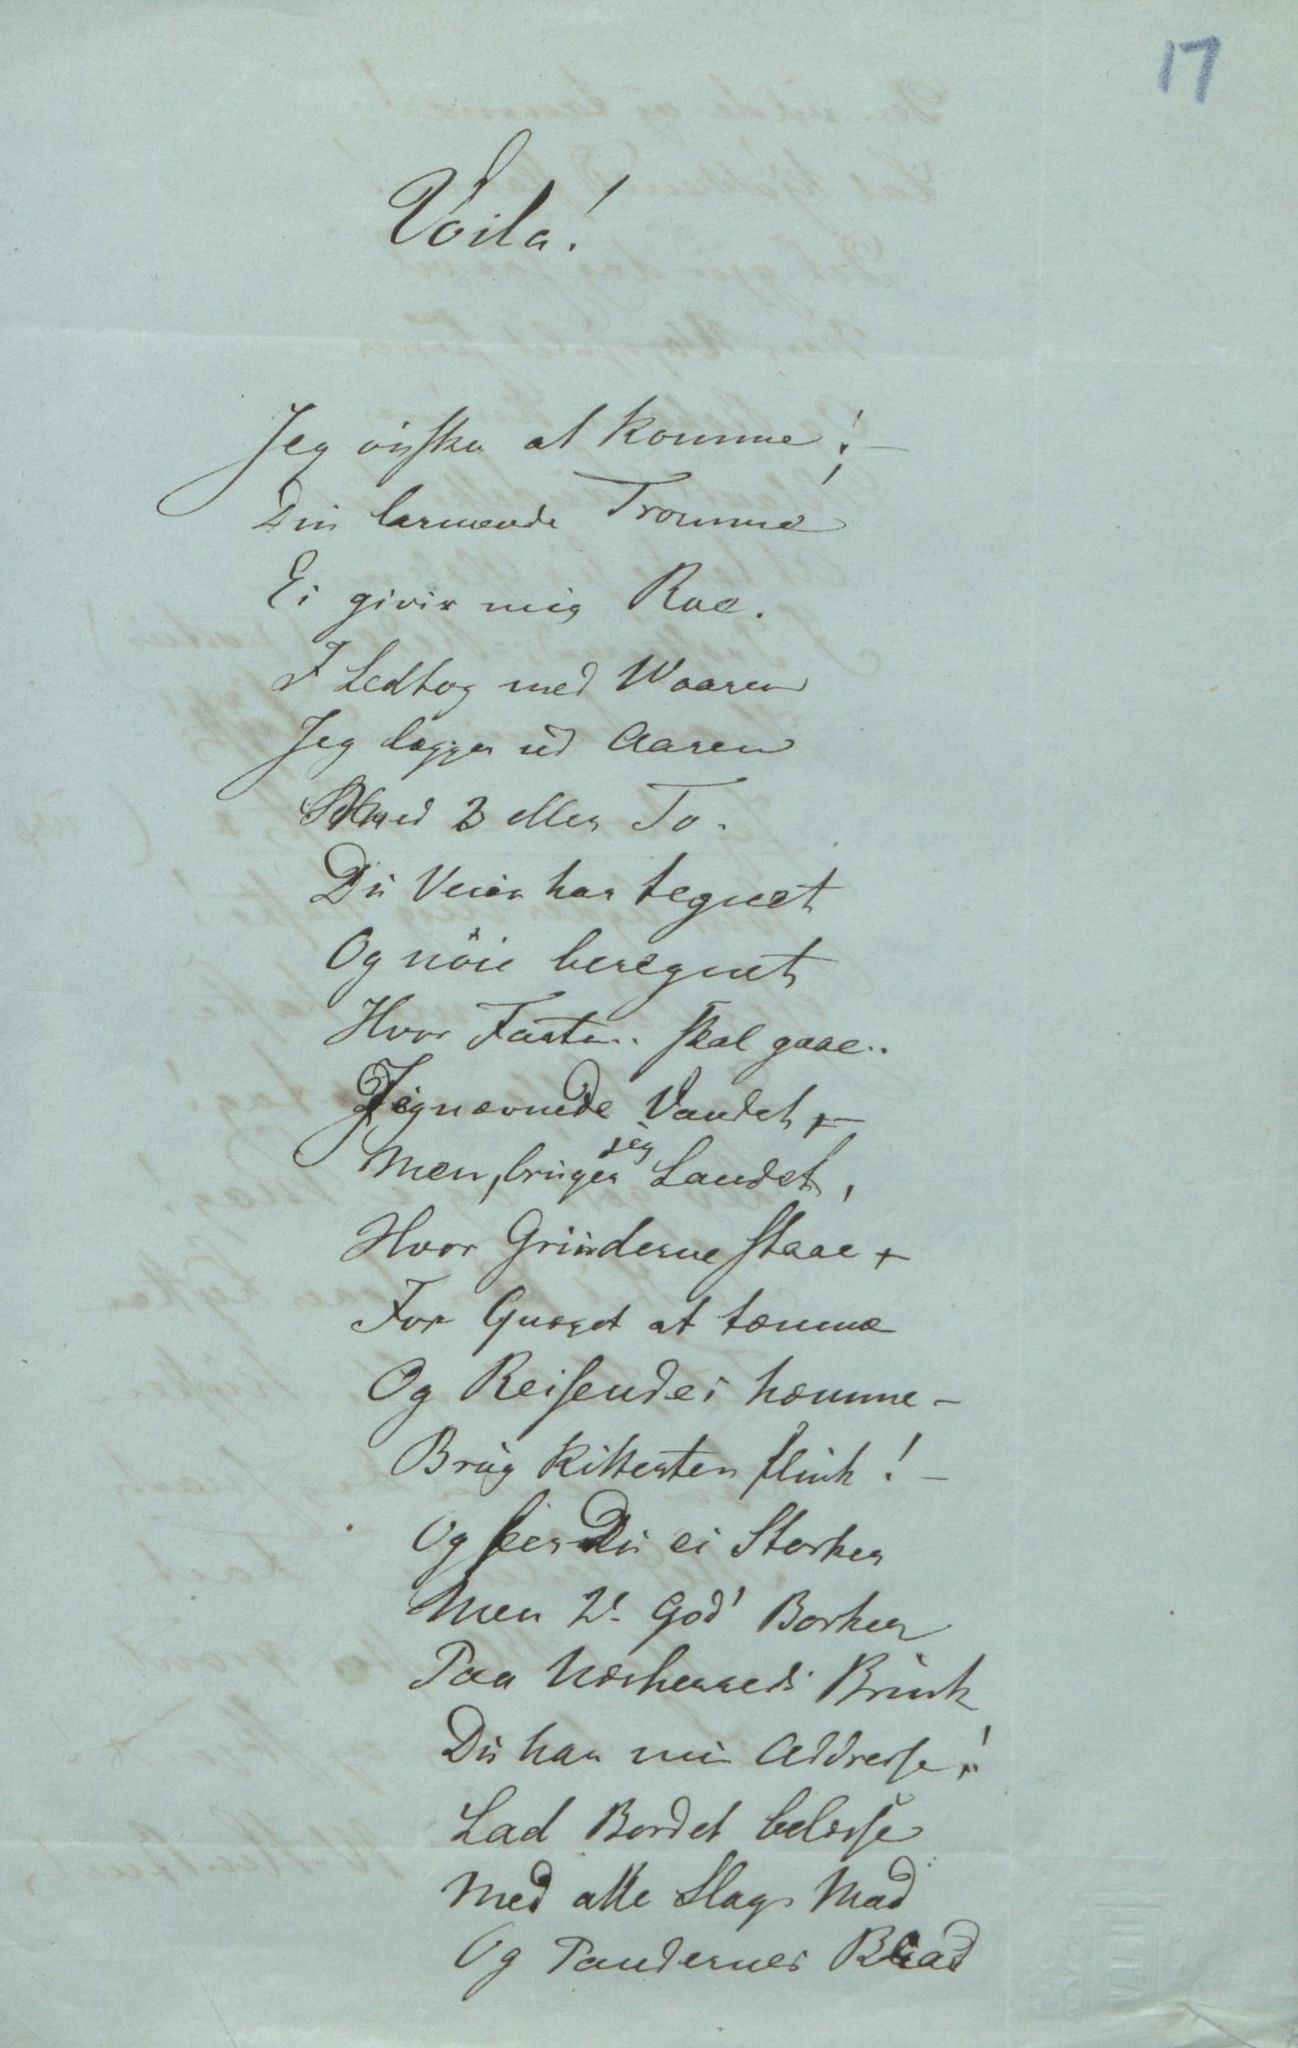 17
Voila!
Jeg ønsker at komme! –
Din larmende Tromme
Ei giver mig Roe.
I Ledtog med Waaren
Jeg lægger ud Aaren
Med 3 eller To.
Du Veien har tegnet
Og nöie beregnet
Hvor Farten.. skal gaae..
Jeg nævnede Vandet, –
Men, bruger jeg Landet,
Hvor Grinderne staae,
For Qvæget at tæmme
Og Reisendes hæmme –
Brug Kikkerten flink! –
Og seer Du ei Storken
Men 2 God' Borker
Paa Næsherreds Brink
Du har min Addresse!
Lad Bordet belæsse
Med alle Slags Mad
Og Tandernes Blad